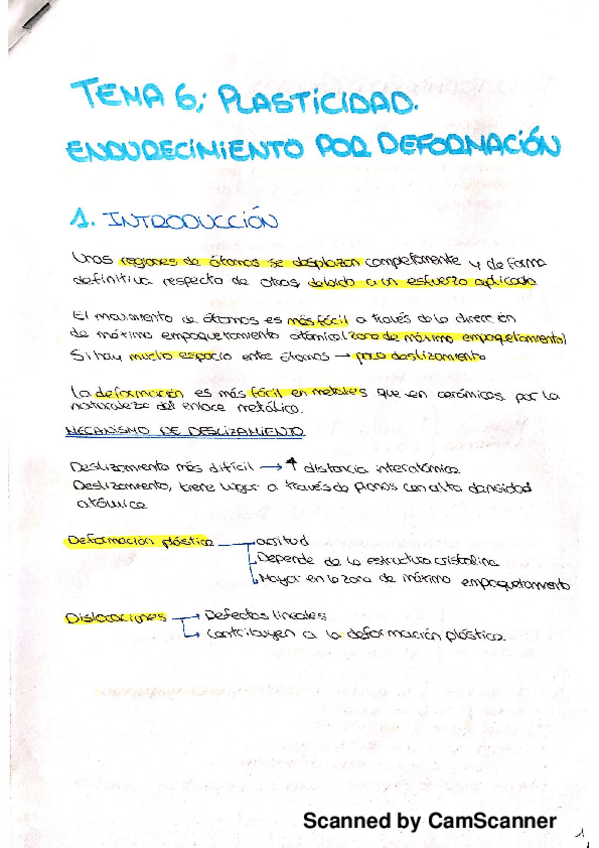 TEMA 6: PLASTICIDAD.
ENDURECIMIENTO POR DEFORMACIÓN
1. INTRODUCCIÓN
Unas regiones de átomos se desplazan completamente y de forma
definitiva respecto de otras debido a un esfuerzo aplicado
El movimiento de átomos es más fácil a través de la dirección
de máximo empaquetamiento atómico (zona de máximo empaquetamiento)
Si hay mucho espacio entre átomos → poco deslizamiento
La deformación es más fácil en metales que en cerámicos por la
naturaleza del enlace metálico.
MECANISMO DE DESLIZAMIENTO
Deslizamiento más difícil → ↑ distancia interatómica
Deslizamiento, tiene lugar a través de planos con alta densidad
atómica
Deformación plástica → acritud
→ Depende de la estructura cristalina
→ Mayor en la zona de máximo empaquetamiento
Dislocaciones → Defectos lineales
→ Contribuyen a la deformación plástica.
Scanned by CamScanner
1